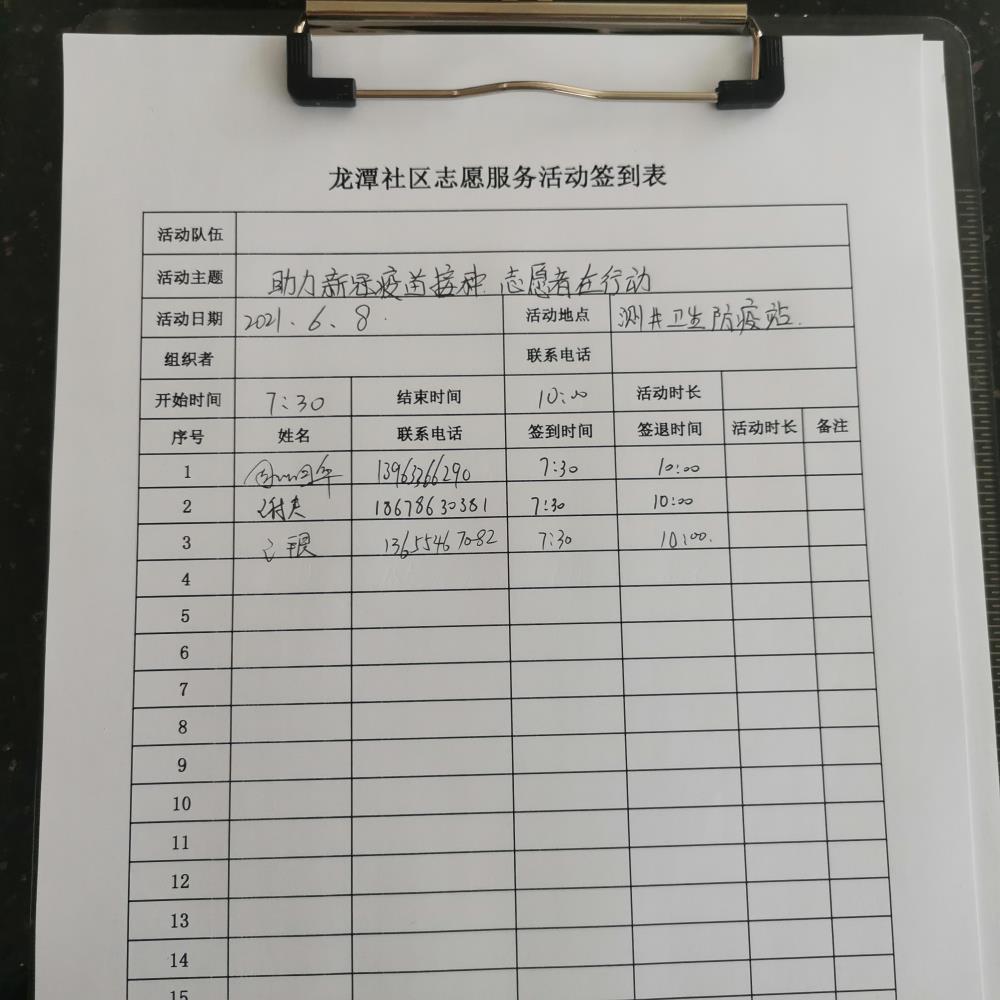 龙潭社区志愿服务活动签到表
活动队伍
活动主题 助力新冠疫苗接种 志愿者在行动
活动日期 2021.6.8. 活动地点 测井卫生防疫站.
组织者 联系电话
开始时间 7:30 结束时间 10:00 活动时长
序号 姓名 联系电话 签到时间 签退时间 活动时长 备注
1 13963266290 7:30 10:00
2 18678630381 7:30 10:00
3 13655467082 7:30 10:00.
4
5
6
7
8
9
10
11
12
13
14
15